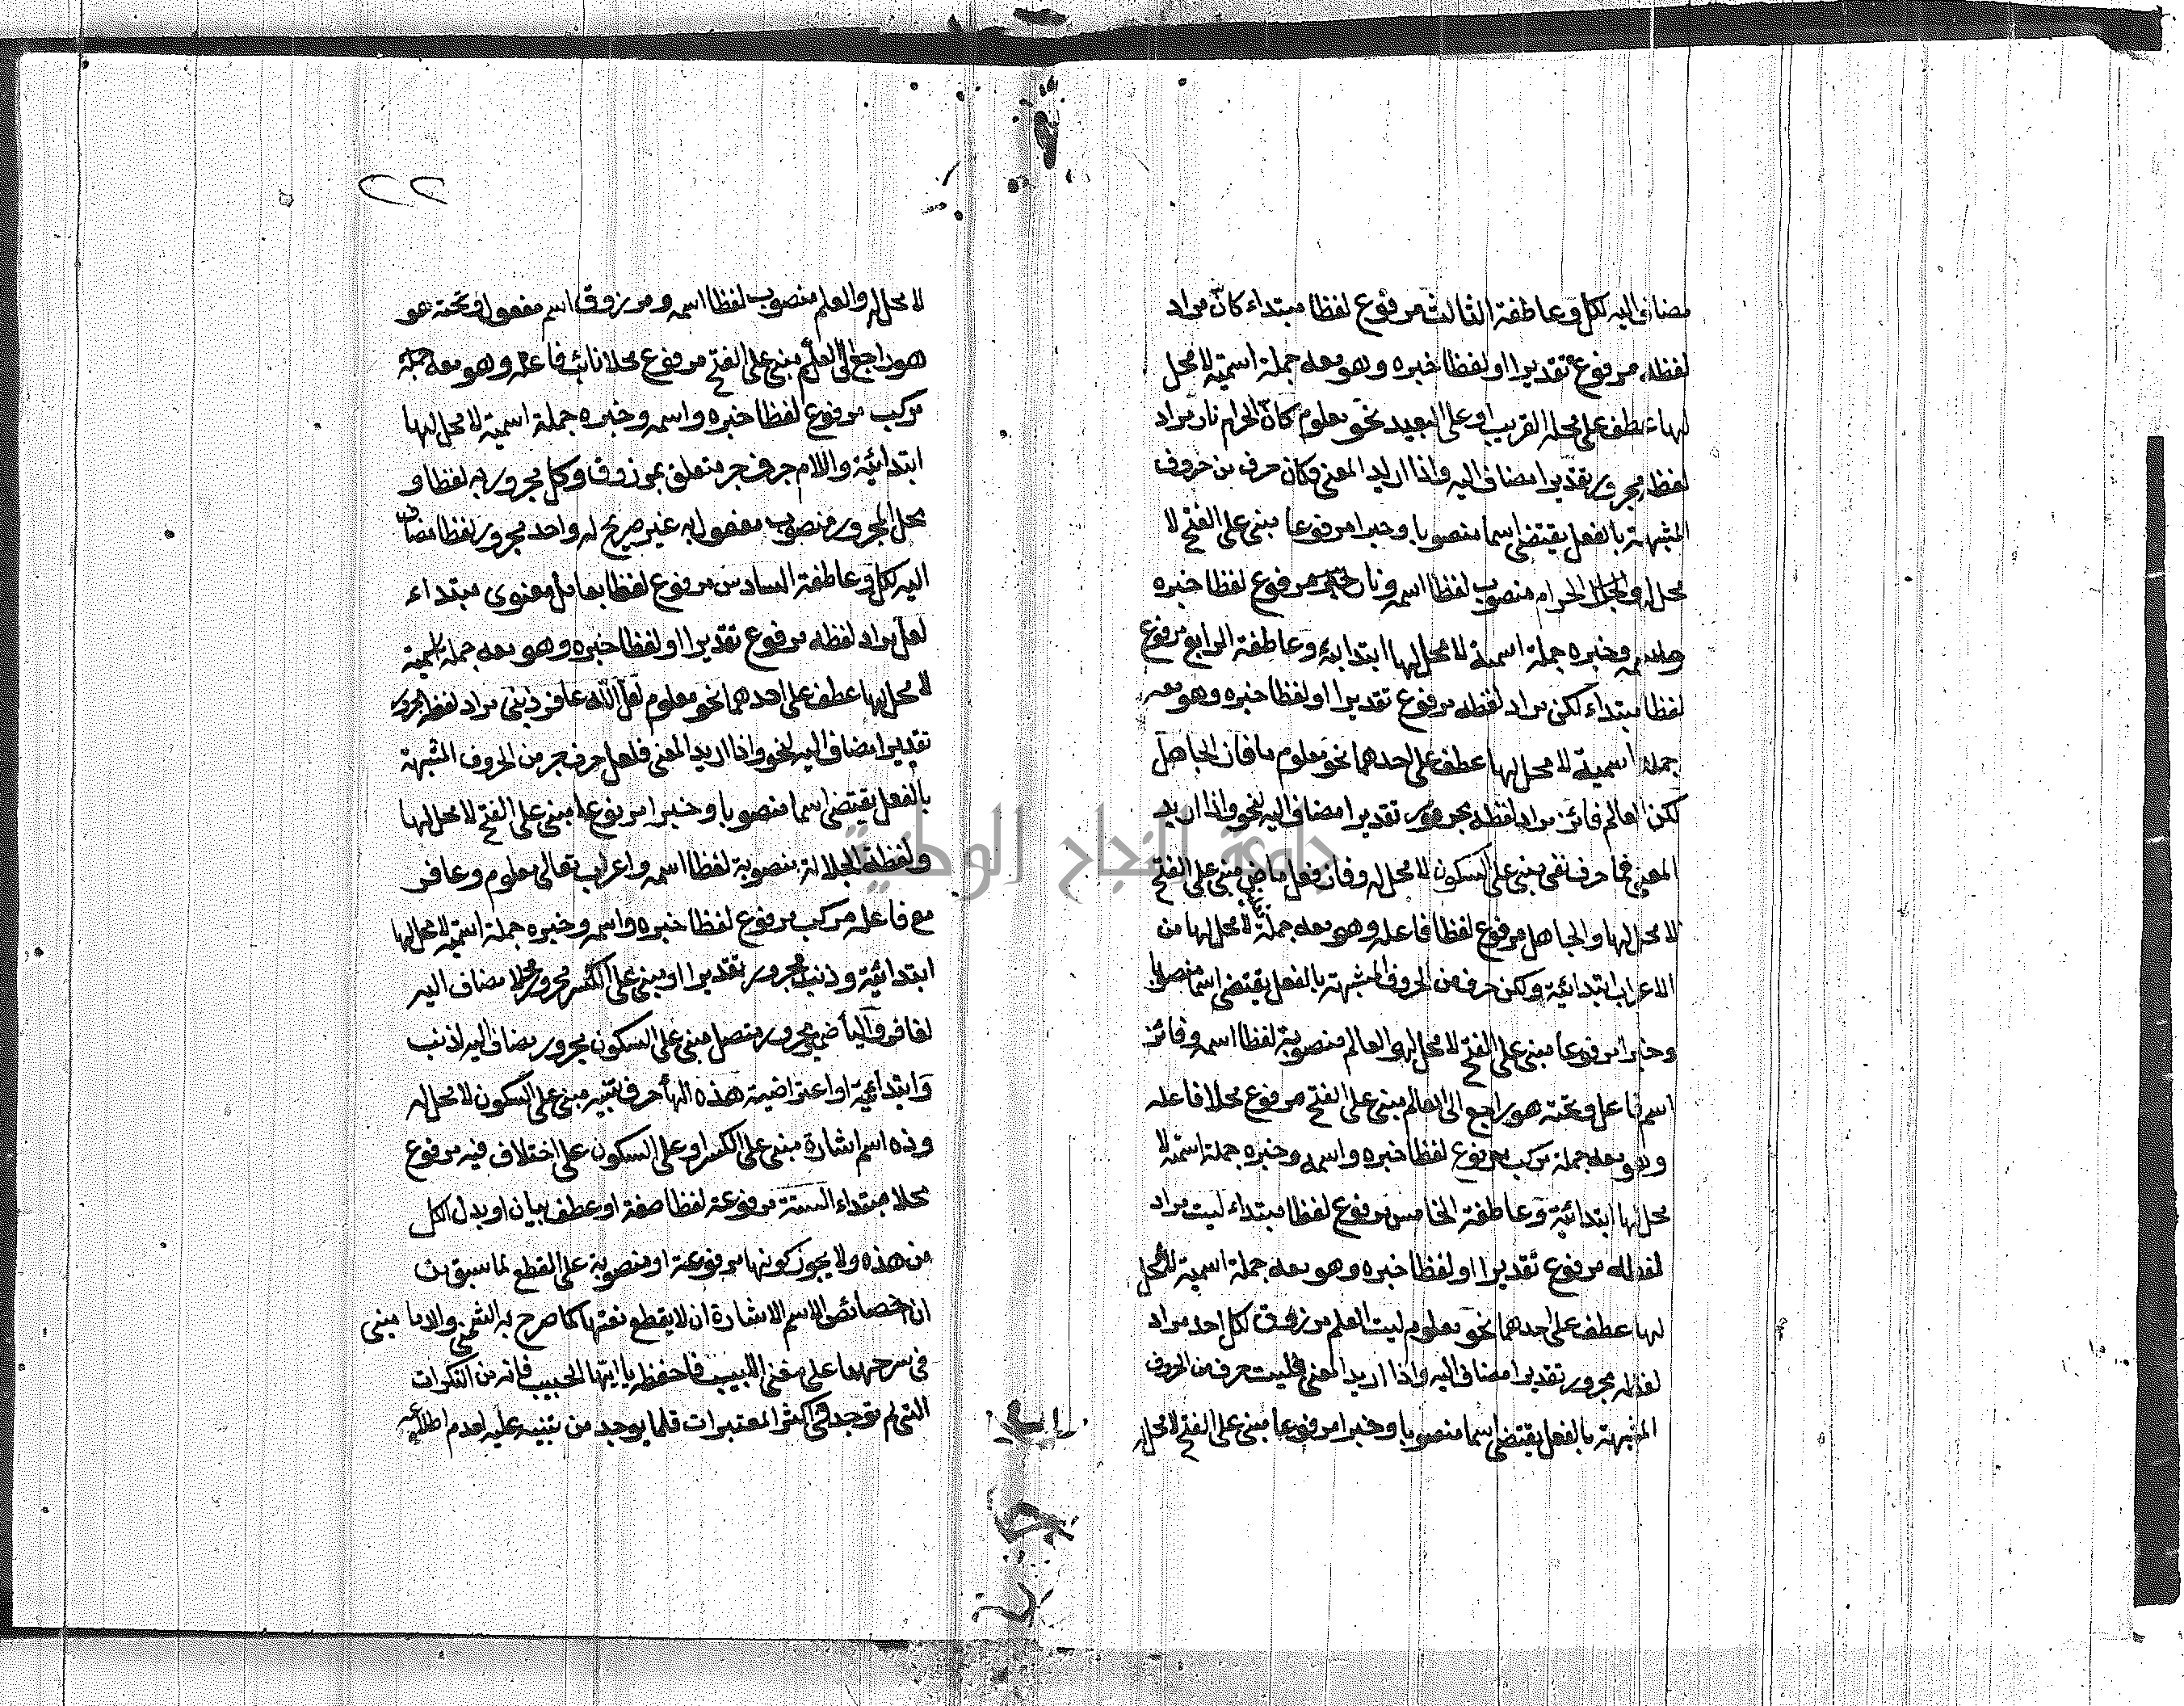 مضاف اليه لكل وعاطفة الثالث مرفوع لفظا مبتداء كانّ مراد
لفظه مرفوع تقديرا او لفظا خبره وهو معه جملة اسمية لا محل
لها عطف على محله القريب او على البعيد نحو معلوم كانّ الحرام نار مراد
لفظه مجرور تقديرا مضاف اليه واذا اريد المعنى فكان حرف من حروف
المشبهة بالفعل يقتضى اسما منصوبا وخبرا مرفوعا مبنى على الفتح لا
محل له الحرام منصوب لفظا اسمه ونار مرفوع لفظا خبره
واسمه وخبره جملة اسمية لا محل لها ابتدائية وعاطفة الرابع مرفوع
لفظا مبتداء لكن مراد لفظه مرفوع تقديرا او لفظا خبره وهو معه
جملة اسمية لا محل لها عطف على احدهما نحو معلوم ما فاز الجاهل
لكن العالم فائز مراد لفظه مجرور تقديرا مضاف اليه لنحو واذا اريد
المعنى فما حرف نفى مبنى على السكون لا محل له وفاز فعل ماض مبنى على الفتح
لا محل لها والجاهل مرفوع لفظا فاعله وهو معه جملة لا محل لها من
الاعراب ابتدائية ولكن حرف من الحروف المشبهة بالفعل يقتضى اسما منصوبا
وخبرا مرفوعا مبنى على الفتح لا محل له والعالم منصوبة لفظا اسمه وفائز
اسم فاعل وتحته هو راجع الى العالم مبنى على الفتح مرفوع محلا فاعله
وهو معه جملة مركب مرفوع لفظا خبره واسمه وخبره جملة اسمية لا
محل لها ابتدائية وعاطفة الخامس مرفوع لفظا مبتداء ليت مراد
لفظه مرفوع تقديرا او لفظا خبره وهو معه جملة اسمية لا محل
لها عطف على احدهما نحو معلوم ليت العلم مرزوق لكل احد مراد
لفظه مجرور تقديرا مضاف اليه واذا اريد المعنى فليت حرف من الحروف
المشبهة بالفعل يقتضى اسما منصوبا وخبرا مرفوعا مبنى على الفتح لا محل له
٢٢
لا محل له والعلم منصوب لفظا اسمه ومرزوق اسم مفعول وتحته هو
هو راجع الى العلم مبنى على الفتح مرفوع محلا نائب فاعله وهو معه جملة
مركب مرفوع لفظا خبره واسمه وخبره جملة اسمية لا محل لها
ابتدائية واللام حرف جر متعلق بمرزوق وكل مجرور به لفظا و
محل المجرور منصوب مفعول به غير صريح له واحد مجرور لفظا مضاف
اليه لكل وعاطفة السادس مرفوع لفظا بعامل معنوى مبتداء
لعل مراد لفظه مرفوع تقديرا او لفظا خبره وهو معه جملة اسمية
لا محل لها عطف على احدهما نحو معلوم لعل الله غافر ذنبى مراد لفظه مجرور
تقديرا مضاف اليه لنحو واذا اريد المعنى فلعل حرف جر من الحروف المشبهة
بالفعل يقتضى اسما منصوبا وخبرا مرفوعا مبنى على الفتح لا محل لها
ولفظة الجلالة منصوبة لفظا اسمه واعراب تعالى معلوم وغافر
مع فاعله مركب مرفوع لفظا خبره واسمه وخبره جملة اسمية لا محل لها
ابتدائية وذنب مجرور تقديرا او مبنى على الكسر مجرور محلا مضاف اليه
لغافر والياء ضمير مجرور متصل مبنى على السكون مجرور مضاف اليه لذنب
وابتدائية او اعتراضية هذه الهاء حرف تنبيه مبنى على السكون لا محل له
وذه اسم اشارة مبنى على الكسر او على السكون على اختلاف فيه مرفوع
محلا مبتداء الستة مرفوعة لفظا صفة او عطف بيان او بدل الكل
من هذه ولا يجوز كونها مرفوعة او منصوبة على القطع لما سبق من
ان خصائص الاسم الاشارة ان لا يقطع نعتها كما صرح به الشمنى والدمامينى
فى شرحهما على مغنى اللبيب فاحفظه يا ايها الحبيب فانه من النكرات
التى لم توجد فى اكثر المعتبرات قلما يوجد من تنبه عليه لعدم اطلاعه
جامعة النجاح الوطنية